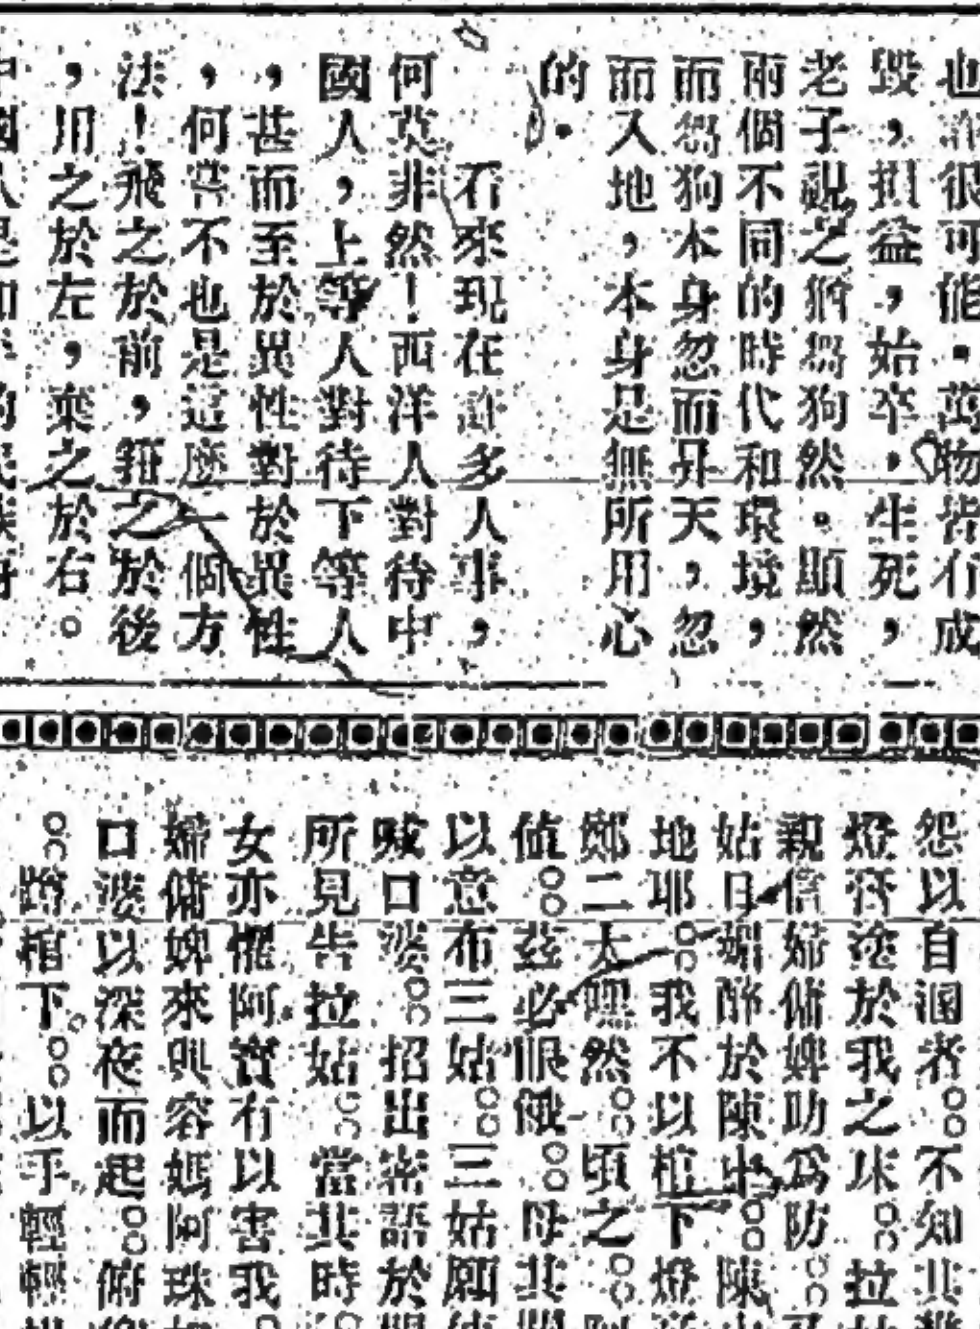 也許很可能．萬物皆有成
毀，損益，始卒，生死，
老子說之猶芻狗然。顯然
兩個不同的時代和環境，
而芻狗本身忽而昇天，忽
而入地，本身是無所用心
的．
看來現在許多人事，
何莫非然！西洋人對待中
國人，上等人對待下等人
，甚而至於異性對於異性
，何嘗不也是這麼一個方
法！飛之於前，箝之於後
，用之於左，棄之於右。
中國人是
怨以自溷者。。不知其
燈膏塗於我之床。。拉
親信婦傭婢助為防。。
姑日娼醉於陳
地耶。。我不以棺下燈
鄭二太嘿然。。頃之。。
值。。茲必恨餓。。母其
以意布三姑。。三姑願
喊口婆。。招出密語於
所見告拉姑。。當其時
女亦懼阿寶有以害我
婦傭婢來與容媽阿珠
口婆以深夜而起。。俯
。。蹲棺下。。以手輕輕